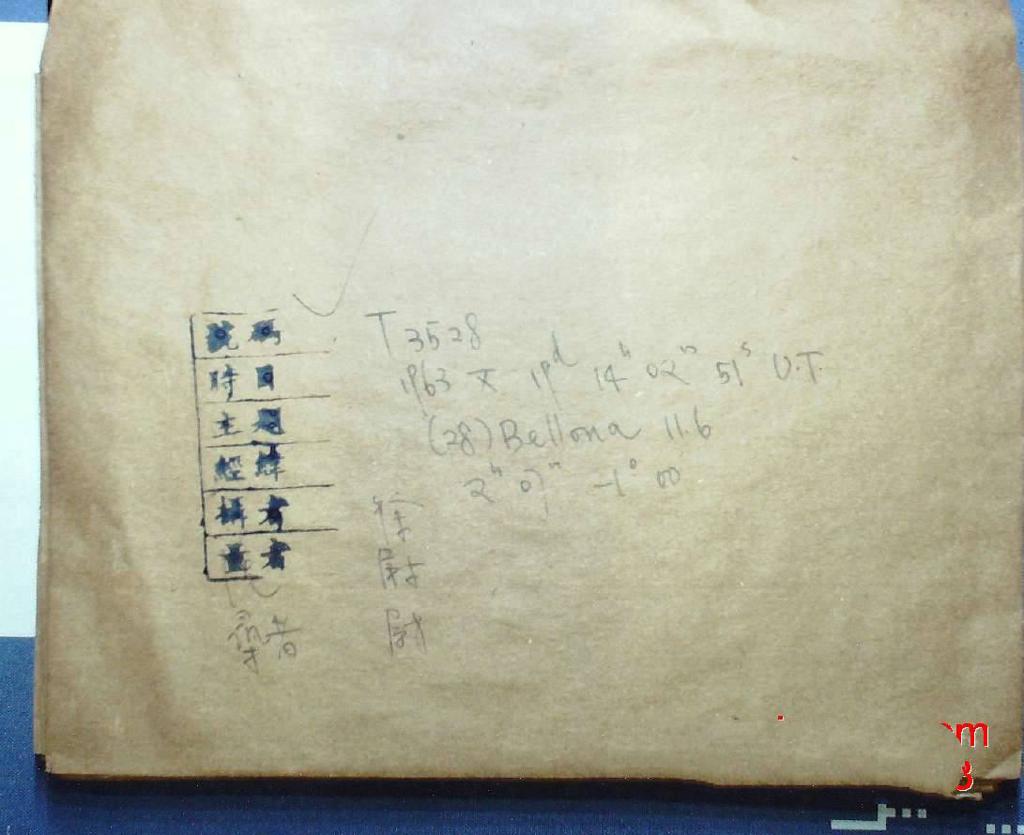 號碼 T3528
時日 1963 X 19ᵈ 14ʰ 02ᵐ 51ˢ U.T.
主題 (28) Bellona 11.6
經緯 2ʰ 07ᵐ -1° 00
攝者 徐
量者
者
om
3